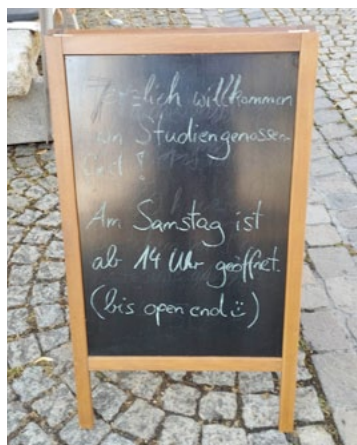 Herzlich willkommen
Studiengenossen
!
Am Samstag ist
ab 14 Uhr geöffnet.
(bis open end ü)